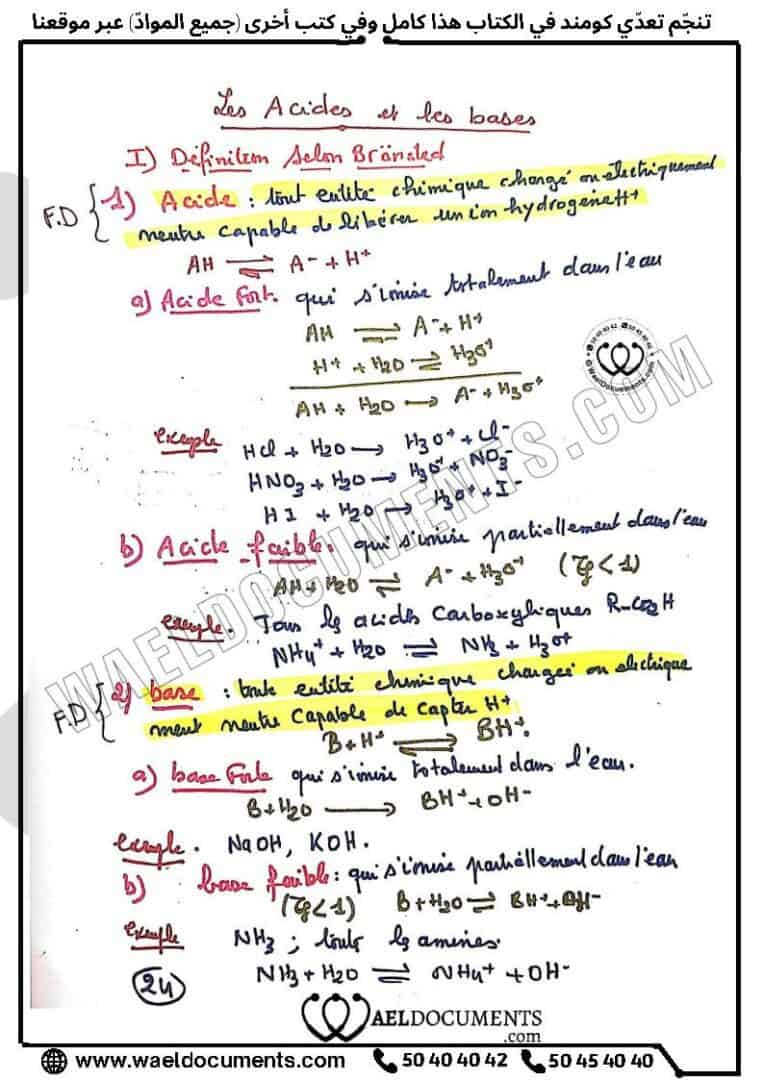 تنجّم تعدّي كومند في الكتاب هذا كامل وفي كتب أخرى (جميع الموادّ) عبر موقعنا
Les Acides et les bases
I) Définition Selon Brönsted
F.D { 1) Acide : tout entité chimique chargé ou électriquement
neutre capable de libérer un ion hydrogène H+
AH ⇌ A- + H+
a) Acide Fort. qui s'ionise totalement dans l'eau
AH ⇌ A- + H+
H+ + H2O ⇌ H3O+
AH + H2O → A- + H3O+
Exemple HCl + H2O → H3O+ + Cl-
HNO3 + H2O → H3O+ + NO3-
HI + H2O → H3O+ + I-
b) Acide faible : qui s'ionise partiellement dans l'eau
AH + H2O ⇌ A- + H3O+ (τf < 1)
Exemple. Tous les acides Carboxyliques R-CO2H
NH4+ + H2O ⇌ NH3 + H3O+
F.D { 2) base : toute entité chimique chargée ou electrique
ment neutre Capable de Capter H+
B + H+ ⇌ BH+.
a) base Forte qui s'ionise totalement dans l'eau.
B + H2O → BH+ + OH-
Exemple. NaOH, KOH.
b) base faible : qui s'ionise partiellement dans l'eau
(τf < 1) B + H2O ⇌ BH+ + OH-
Exemple NH3 ; toutes les amines.
NH3 + H2O ⇌ NH4+ + OH-
24
WAELDOCUMENTS.COM
WAELDOCUMENTS
.com
www.waeldocuments.com 50 40 40 42 50 45 40 40